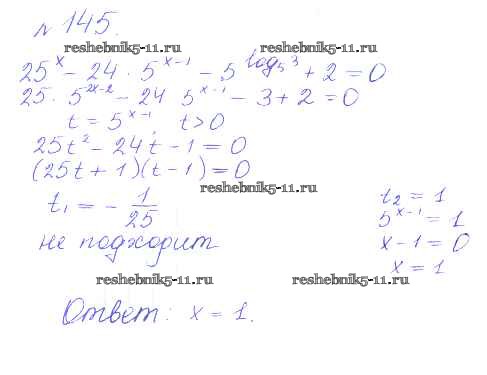 № 145.
reshebnik5-11.ru
reshebnik5-11.ru
25^x - 24 · 5^(x-1) - 5^(log₅3) + 2 = 0
25 · 5^(2x-2) - 24 5^(x-1) - 3 + 2 = 0
t = 5^(x-1) t > 0
25t² - 24t - 1 = 0
(25t + 1)(t - 1) = 0
reshebnik5-11.ru
t₁ = - 1/25
не подходит
t₂ = 1
5^(x-1) = 1
x - 1 = 0
x = 1
reshebnik5-11.ru
reshebnik5-11.ru
Ответ: x = 1.